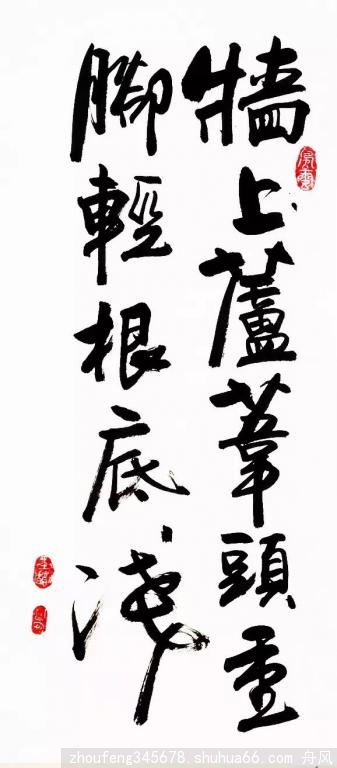 牆上蘆葦頭重
腳輕根底淺
zhoufeng345678.shuhua66.com 舟风